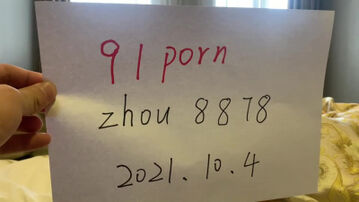 91 porn
zhou 8878
2021.10.4